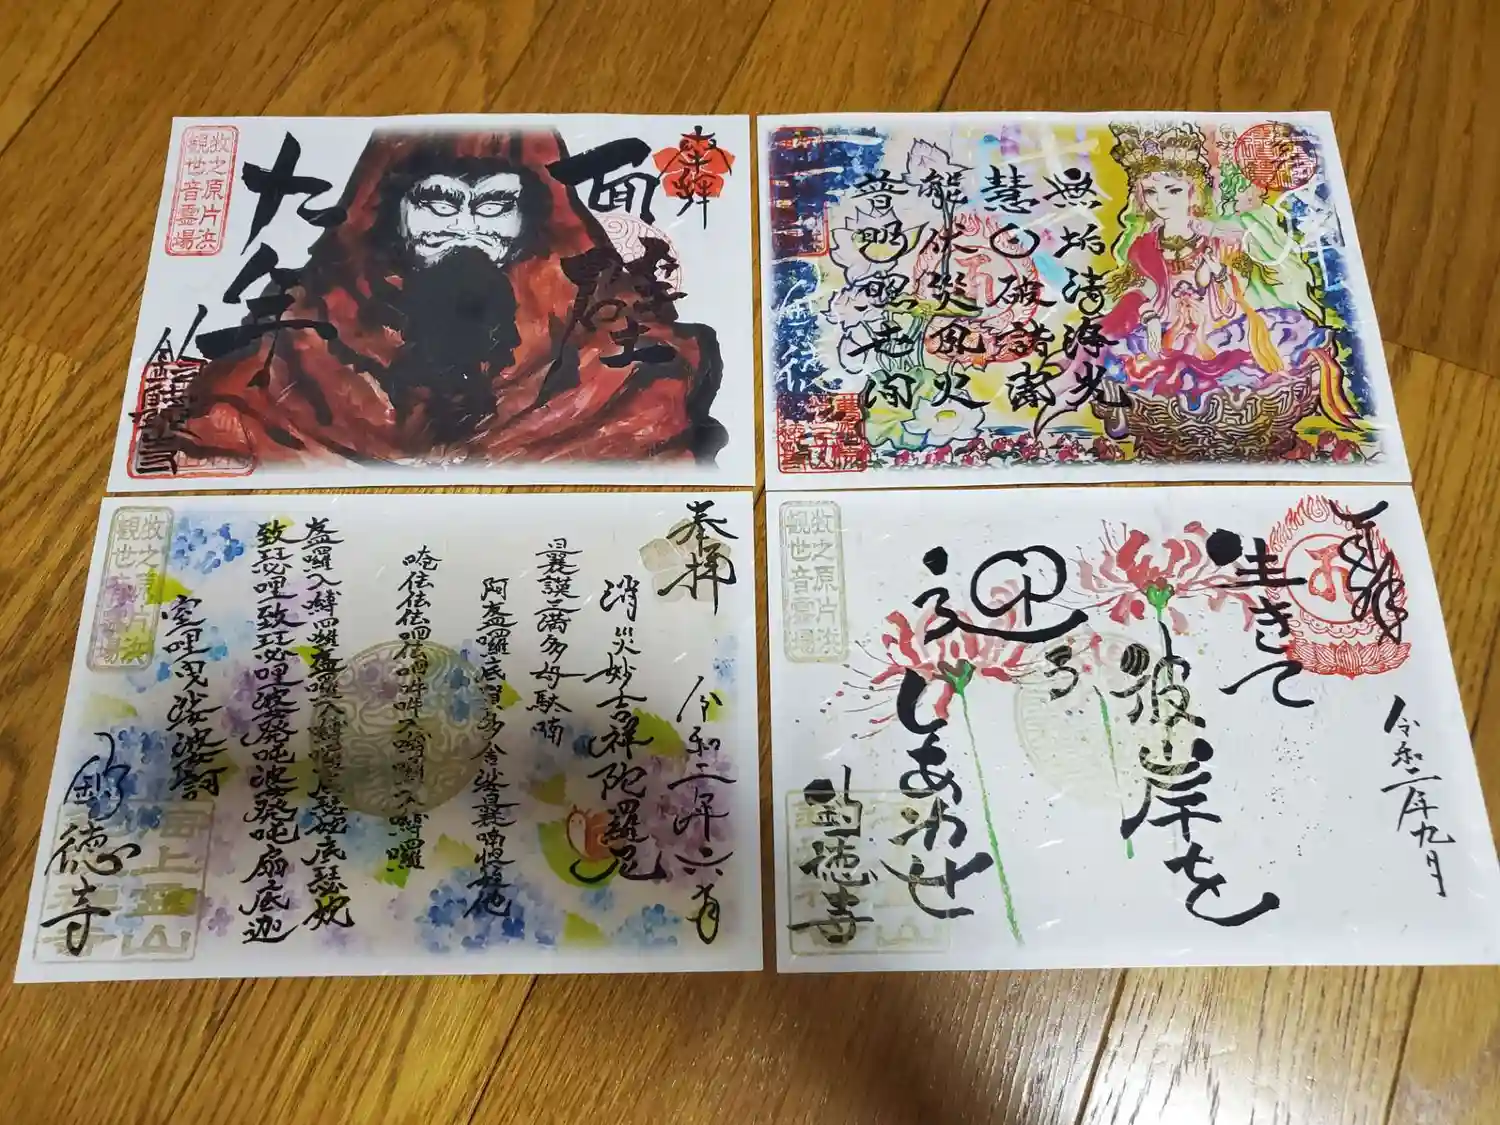 奉拝
面壁
九年
釣徳寺
牧之原片浜
観世音霊場
無垢清浄光
慧日破諸闇
能伏災風火
普明照世間
奉拝
令和二年六月
消災妙吉祥陀羅尼
曩謨三満多母駄喃
阿盋囉底賀多舎娑曩喃怛姪他
唵佉佉佉呬佉呬吽吽入嚩囉入嚩囉
盋囉入嚩囉盋囉入嚩囉底瑟妩底瑟妩
致瑟哩致瑟哩娑発吒娑発吒扇底迦
室哩曳娑婆訶
釣徳寺
牧之原片浜
観世音霊場
海上霊山
奉拝
令和二年九月
生きて
彼岸を
迎える
しあわせ
釣徳寺
牧之原片浜
観世音霊場